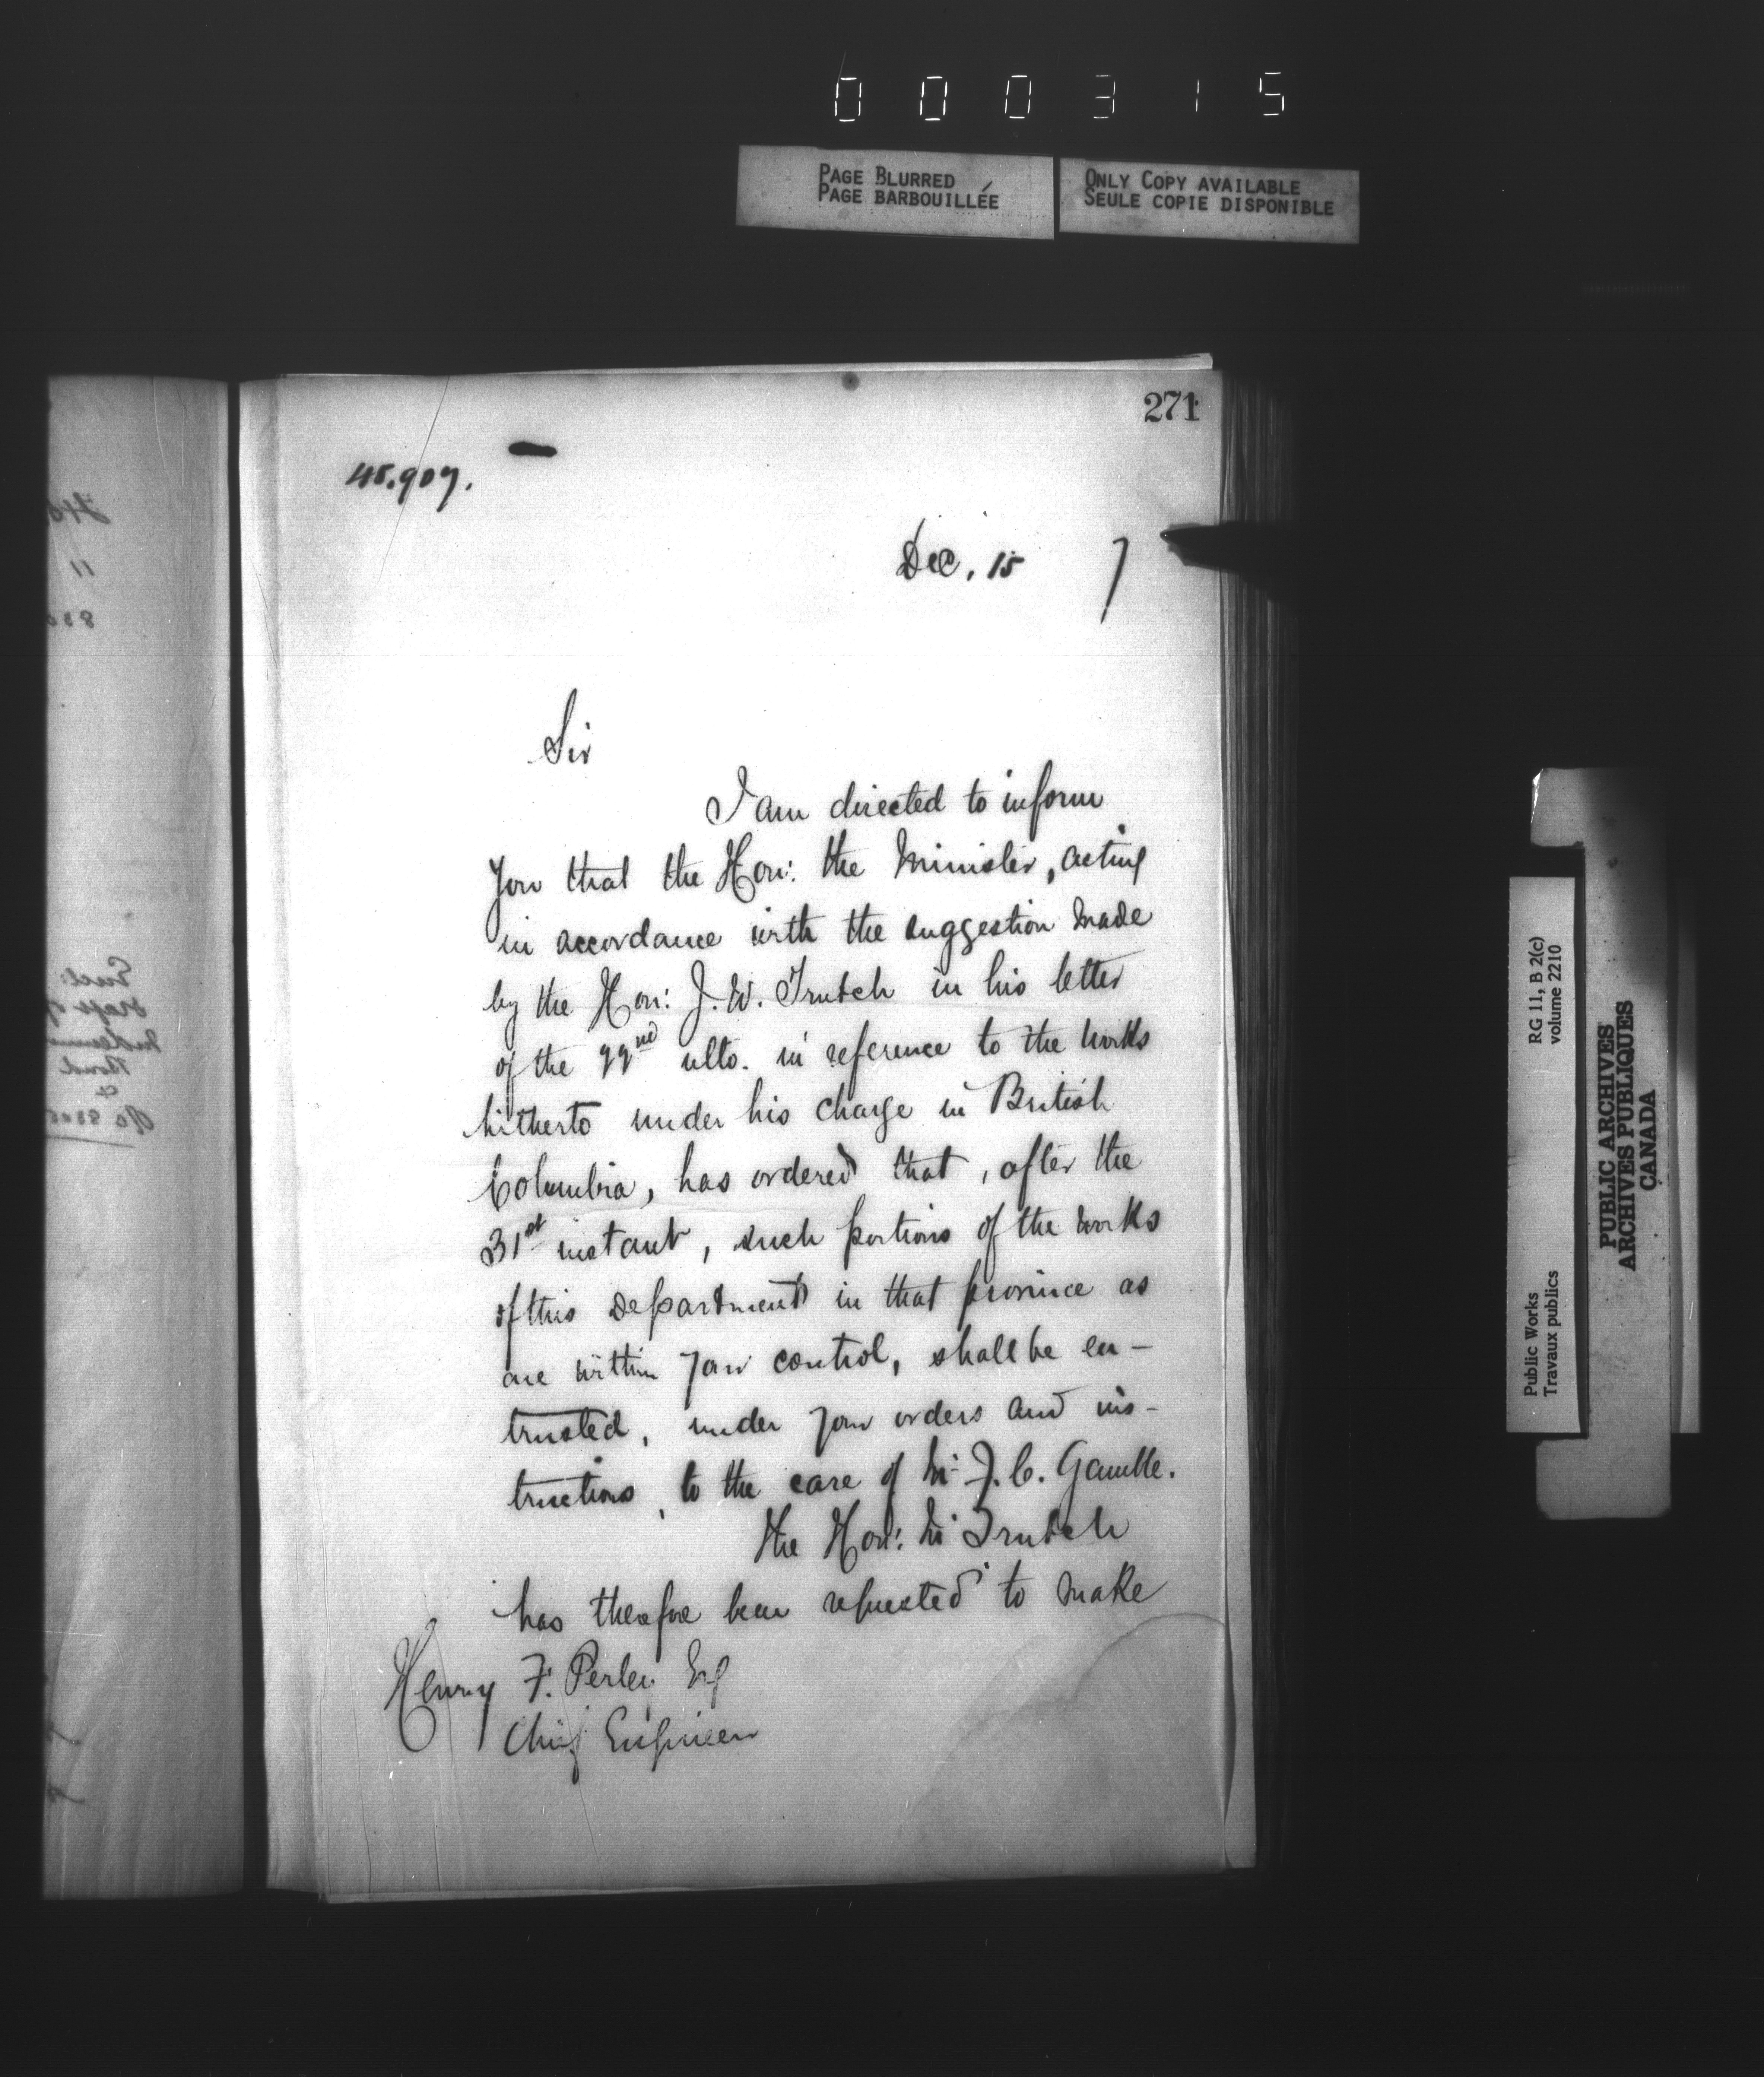 000315
PAGE BLURRED
PAGE BARBOUILLÉE
ONLY COPY AVAILABLE
SEULE COPIE DISPONIBLE
271
45.907.
Dec. 15 7
Sir
I am directed to inform
you that the Hon: the Minister, acting
in accordance with the suggestion made
by the Hon: J. W. Trutch in his letter
of the 22nd ulto. in reference to the works
hitherto under his charge in British
Columbia, has ordered that, after the
31st instant, such portions of the works
of this Department in that province as
are within your control, shall be en-
trusted, under your orders and ins-
tructions, to the care of Mr F. C. Gamble.
The Hon: Mr Trutch
has therefore been requested to make
Henry F. Perley Esq
Chief Engineer
RG 11, B 2(c)
volume 2210
Public Works
Travaux publics
PUBLIC ARCHIVES
ARCHIVES PUBLIQUES
CANADA